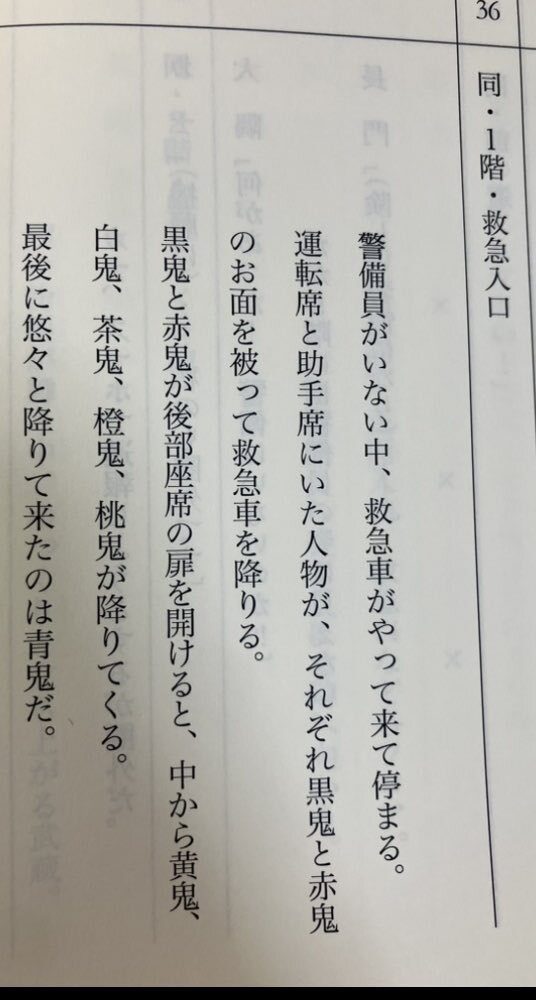 36
同・1階・救急入口
警備員がいない中、救急車がやって来て停まる。
運転席と助手席にいた人物が、それぞれ黒鬼と赤鬼
のお面を被って救急車を降りる。
黒鬼と赤鬼が後部座席の扉を開けると、中から黄鬼、
白鬼、茶鬼、橙鬼、桃鬼が降りてくる。
最後に悠々と降りて来たのは青鬼だ。